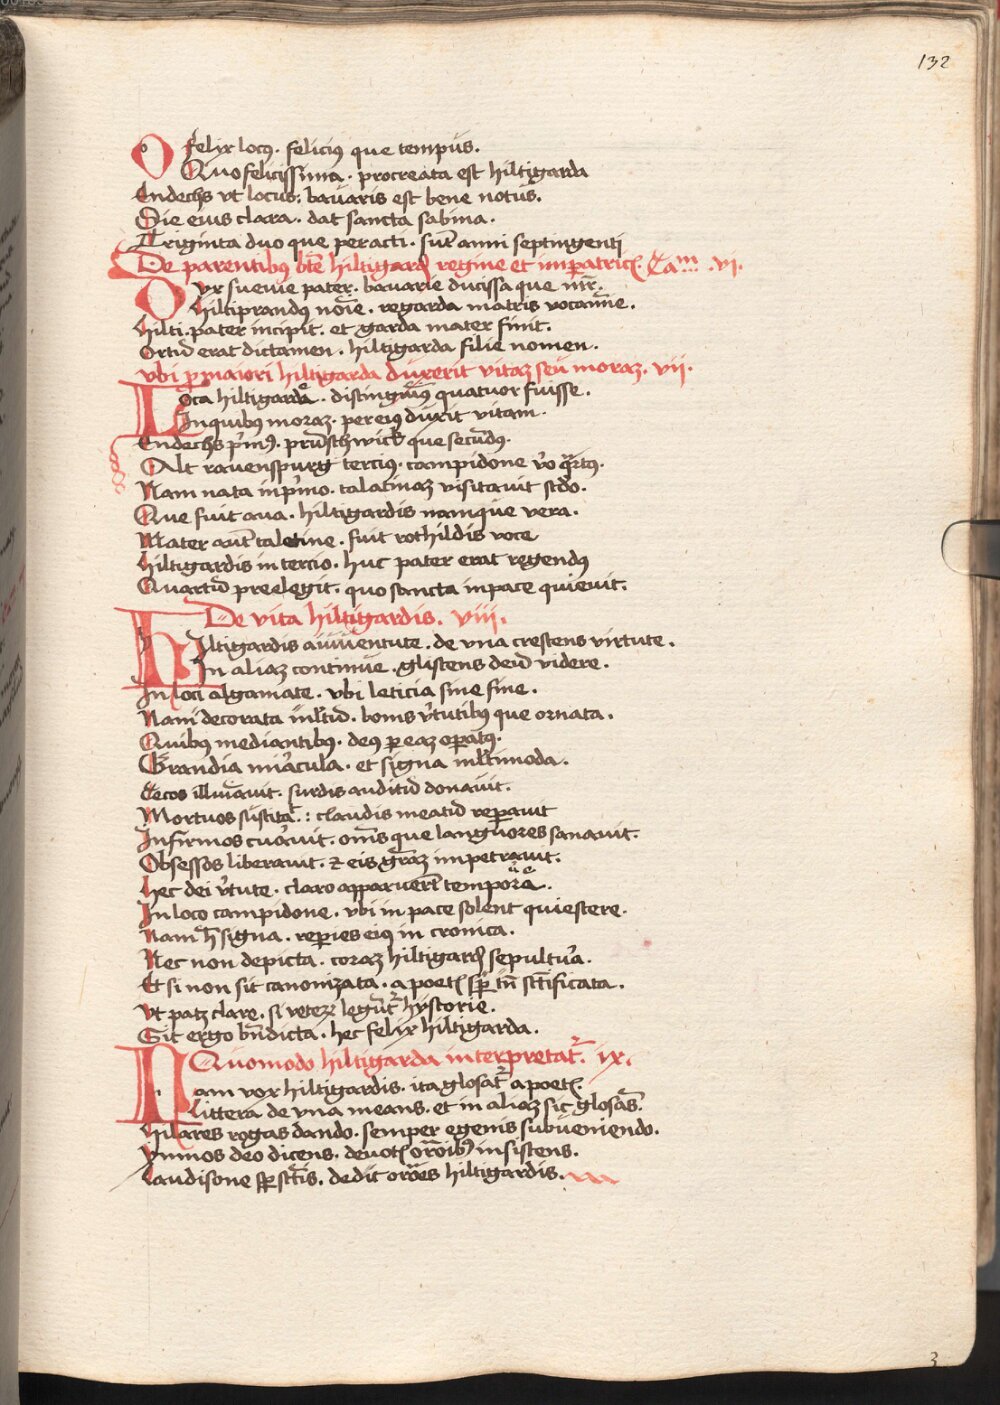 132
O felix locus. felicius que tempus.
Quo felicissima. procreata est hiltigarda
Endechs vt locus. bauaris est bene notus.
Die eius clara. dat sancta sabina.
Triginta duo que peracti. sūt anni septingenti
De parentibus bte hiltigard regine et imperatric. Cam .vi.
Dux sueuie pater. bauarie ducissa que mr.
hiltiprandus noie. regarda matris vocamine.
hilti. pater incipit. et garda mater finit.
Ortū erat dictamen. hiltigarda filie nomen.
vbi pro maiori hiltigarda duxerit vitaz seu moraz. vii.
Loca hiltigarde. distinguimus quatuor fuisse.
In quibus moraz. per eius duxit vitam.
Endechs prims. prunschwick que secundus.
Alt rauenspurg tercius. campidone vo quartus.
Nam nata in primo. talatinaz visitauit scdo.
Que fuit aua. hiltigardis namque vera.
Mater aut taletine. fuit rothildis voce
hiltigardis in tercio. huc pater erat regendus
Quartū preelegit. quo sancta in pace quieuit.
De vita hiltigardis. viii.
Hiltigardis a iuuentute. de vna crescens virtute.
In aliaz continue. gliscens deū videre.
In loci algamate. vbi leticia sine fine.
Nam decorata multū. bonis vtutibus que ornata.
Quibus mediantibus. deus per eaz operatus.
Grandia miracula. et signa multimoda.
Cecos illuminauit. surdis auditū donauit.
Mortuos suscitat. : claudis meatū reparauit
Infirmos curauit. oms que languores sanauit.
Obsessos liberauit. z eis graz impetrauit.
hec dei vtute. claro apparuerūt tempore.
In loco campidone. vbi in pace solent quiescere.
Nam h signa. reperies eius in cronica.
Nec non depicta. coraz hiltigard sepultura.
Et si non sit canonizata. a poet super tn sctificata.
Vt patz clare. si veterz legunt hystorie.
Sit ergo bndicta. hec felix hiltigarda.
Quomodo hiltigarda interpretatr. ix.
Nam vox hiltigardis. ita glosatr a poet.
Littera de vna means. et in aliaz sic glosans.
hilares rogas dando. semper egenis subueniendo.
ymnos deo dicens. deuot oroibus insistens.
Laudisone per sctis. dedit oroes hiltigardis.
3